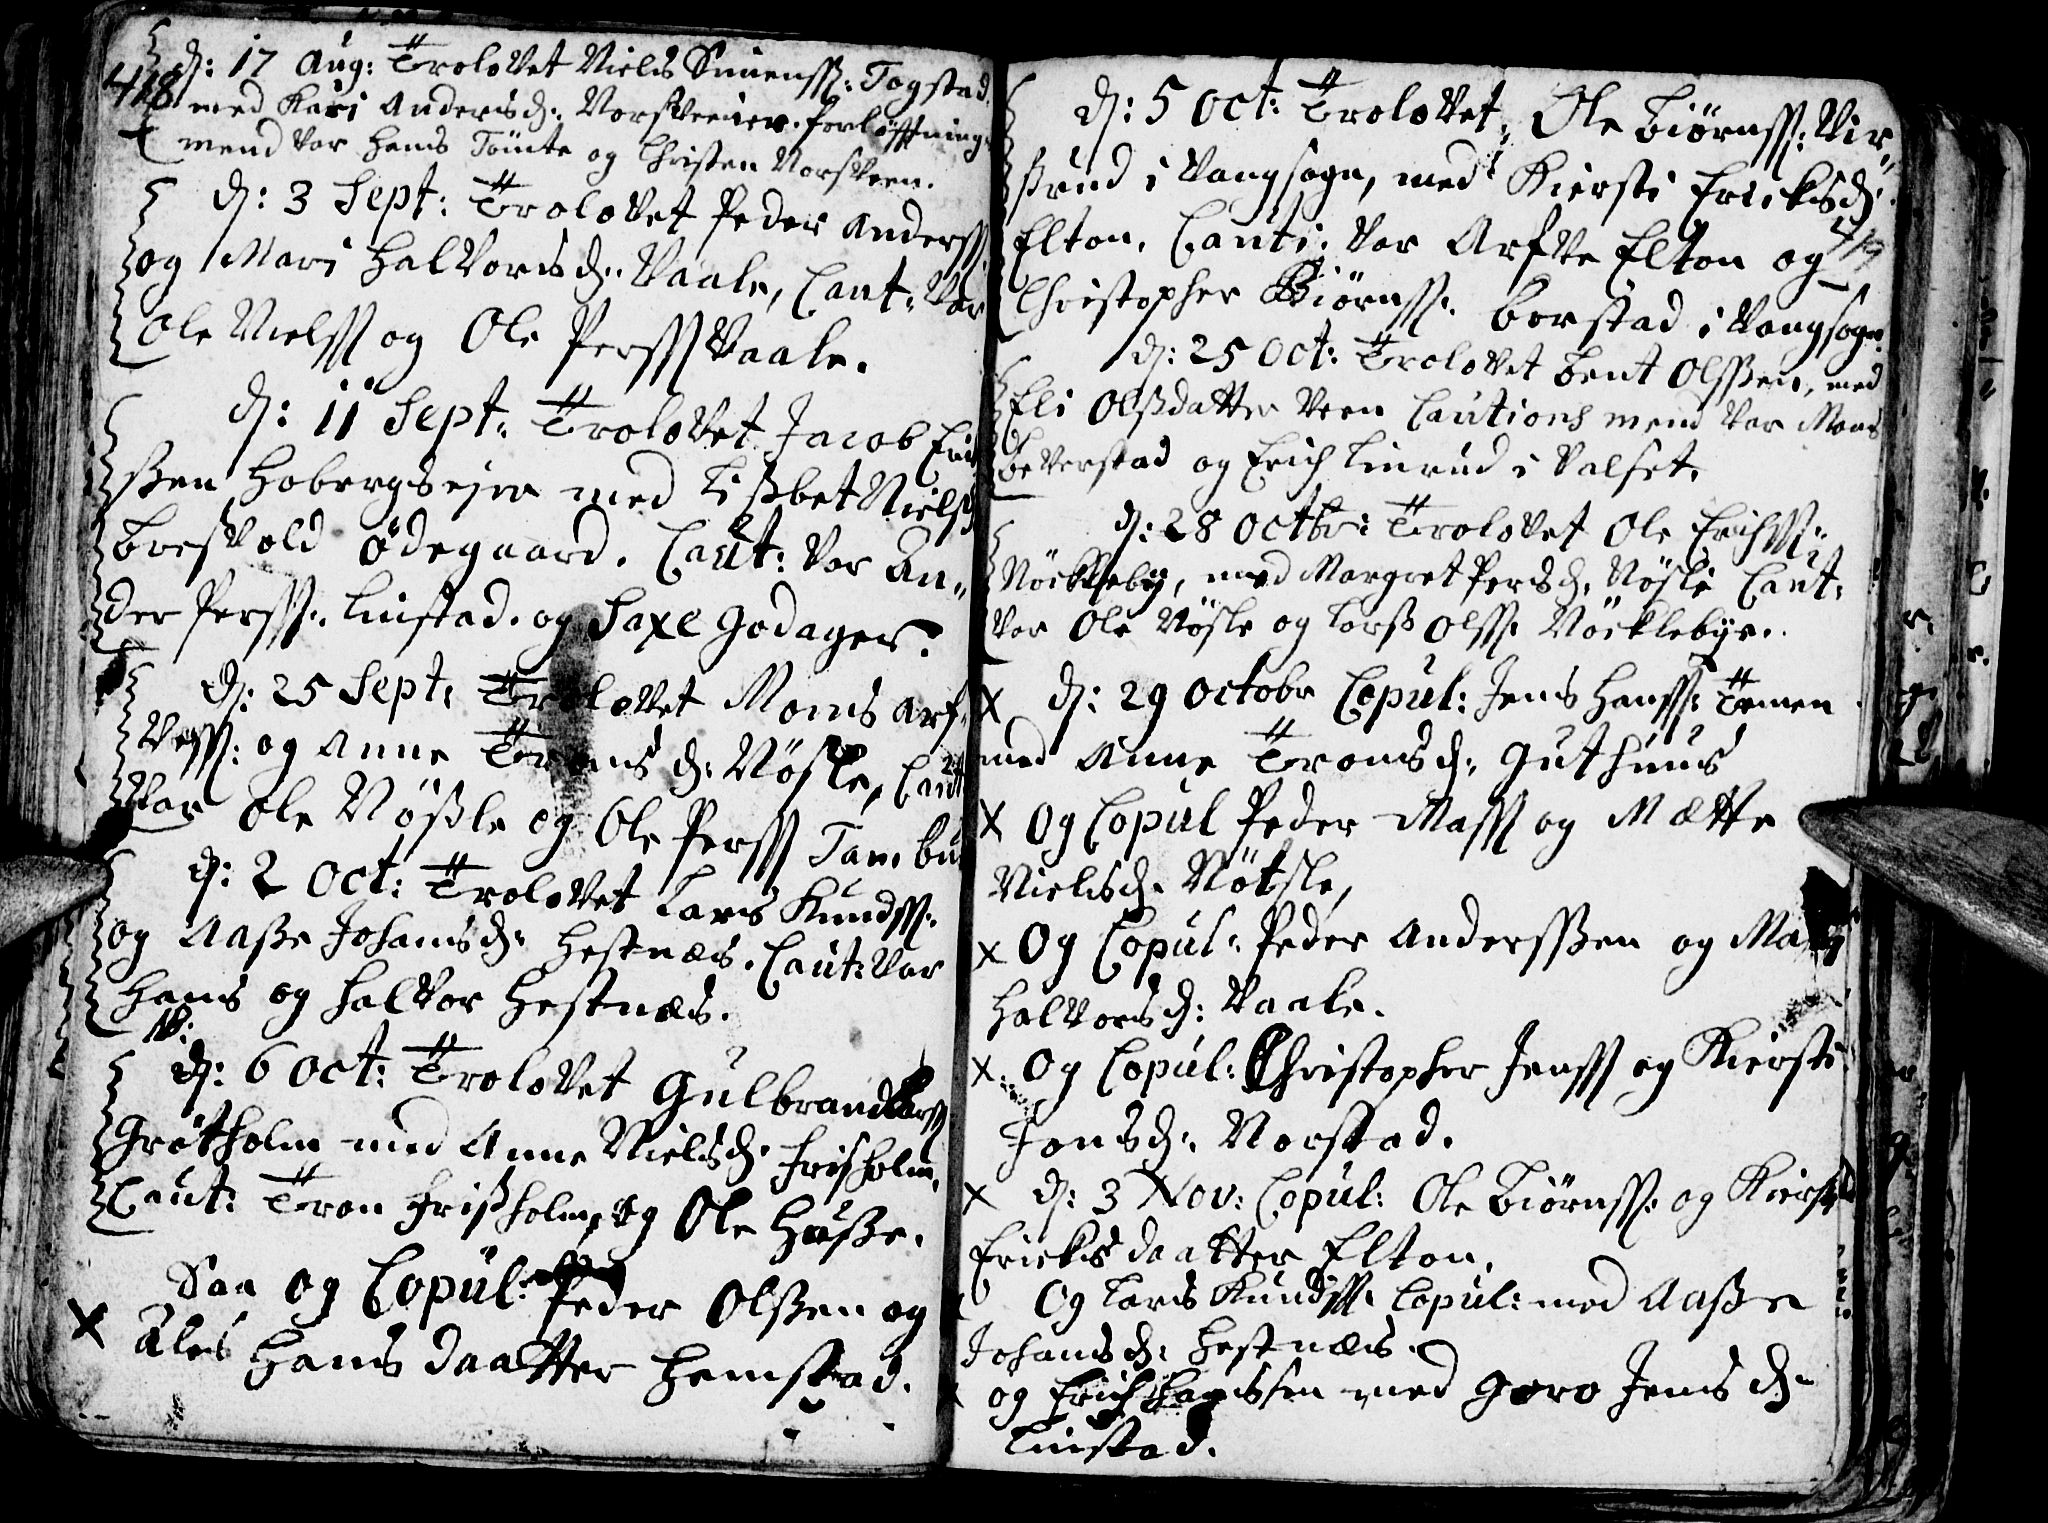 418
d: 17 Aug: Trolovet Niels Simenss: Togstad
med Kari Andersd: Norsveeier. forløftning
mend var Hans Tömte og Christen Norsveen.
d: 3 Sept: Trolovet Peder Anderss
og Mari Halvorsd: Vaale, Caut: var
Ole Nielss og Ole Perss Vaale.
d: 11 Sept: Trolovet Jacob Erich
ßen Hobergsejer med Lisbet Nielsd
Bresvold Ödegaard. Caut: var An„
der Perss. Linstad. og Saxe Godager.
d: 25 Sept: Trolovet Mons Arf„
vess: og Anne Tronsd: Nösle, Caut
var Ole Nößle og Ole Perss
d: 2 Oct: Trolovet Lars Knudss:
og Aaße Johansd: Hestnæs. Caut: var
Hans og Halvor Hestnæs.
NB:
d: 6 Oct: Trolovet Gulbrand Larss
Grötholm med Anne Nielsd: Frisholm,
Caut: Tron Frißholm, og Ole Huße.
Saa og Copul: Peder Olßen og
Hansdaatter Hemstad.
d: 5 Oct: Trolovet, Ole Biörnss: Vir„
ßrud i Vangsogn, med Kiersti Ericksd:
Elton. Cauti. var Arfve Elton og
419
Christopher Biörnss. Borstad i Vangsogn.
d: 25 Oct: Trolovet Bent Olssen, med
Eli Olßdatter Veen Cautions mend var Mons
Beverstad og Erich Linrud i Valset.
d: 28 Octbr: Trolovet Ole Erichss:
Nöckleby, med Margret Persd. Nösle Caut:
var Ole Nösle og Larß Olss. Nöcklebye.
x d: 29 Octobr Copul: Jens Hanss: Temen
med Anne Tronsd: Guthuus
x Og Copul Peder Mass og Mætte
Nielsd. Nötsle,
x Og Copul: Peder Anderssen og
Halvorsd: Vaale.
x. Og Copul: Christopher Jenss og Kiersti
Jonsd: Norstad.
x d: 3 Nov: Copul: Ole Biörnss: og Kiersti
Ericksdaatter Elton.
Og Lars Knudss. Copul: med Aaße
Johansd: Hestnæs.
og Erich med Goro Jensd:
Linstad.